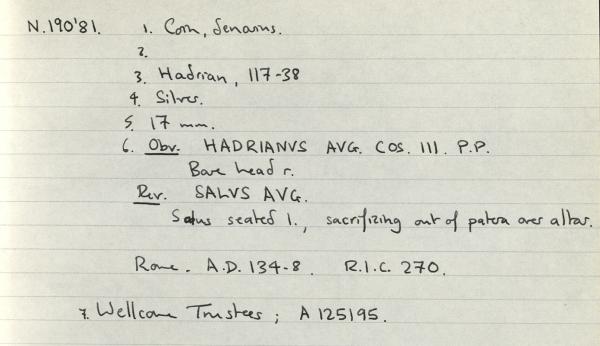 N.190'81. 1. Coin, denarius.
2.
3. Hadrian, 117-38
4. Silver.
5. 17 mm.
6. Obv. HADRIANVS AVG. COS. III. P.P.
Bare head r.
Rev. SALVS AVG.
Salus seated l., sacrificing out of patera over altar.
Rome. A.D. 134-8. R.I.C. 270.
7. Wellcome Trustees; A 125195.